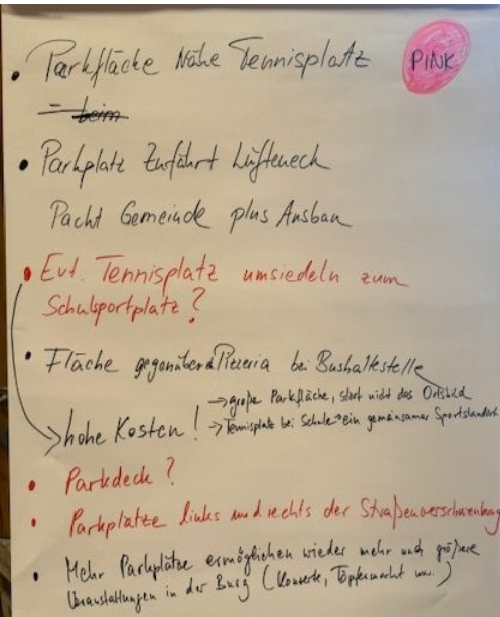 • Parkfläche Nähe Tennisplatz
PINK
- beim
• Parkplatz Zufahrt Lüfteneck
Pacht Gemeinde plus Ausbau
• Evt. Tennisplatz umsiedeln zum
Schulsportplatz?
• Fläche gegenüber d Pizzeria bei Bushaltestelle
→ große Parkfläche, stört nicht das Ortsbild
→ hohe Kosten! → Tennisplatz bei Schule → ein gemeinsamer Sportstandort
• Parkdeck?
• Parkplätze links und rechts der Straßenverschwenkung
• Mehr Parkplätze ermöglichen wieder mehr und größere
Veranstaltungen in der Burg (Konzerte, Töpfermarkt usw.)